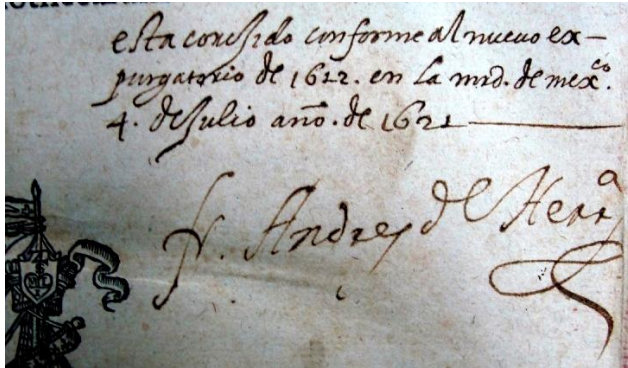 esta corregido conforme al nuevo ex-
purgatorio de 1612. en la mrd. de mexco.
4. de Julio año. de 1621
fr. Andres de Herra